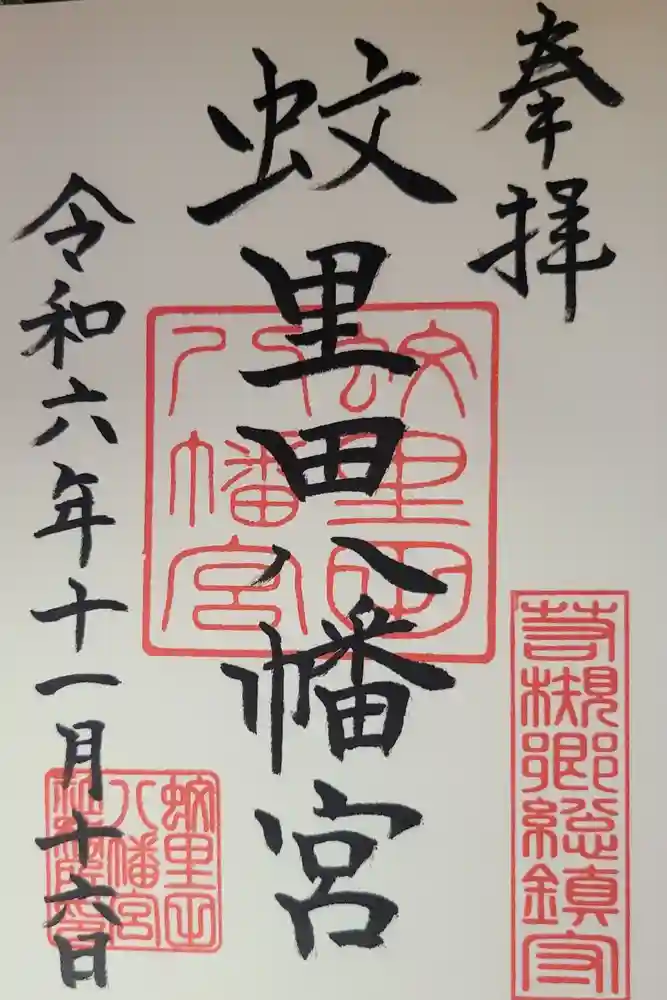 奉拝
蚊里田八幡宮
令和六年十一月十六日
蚊里田
八幡宮
芋槻郷総鎮守
蚊里田
八幡宮